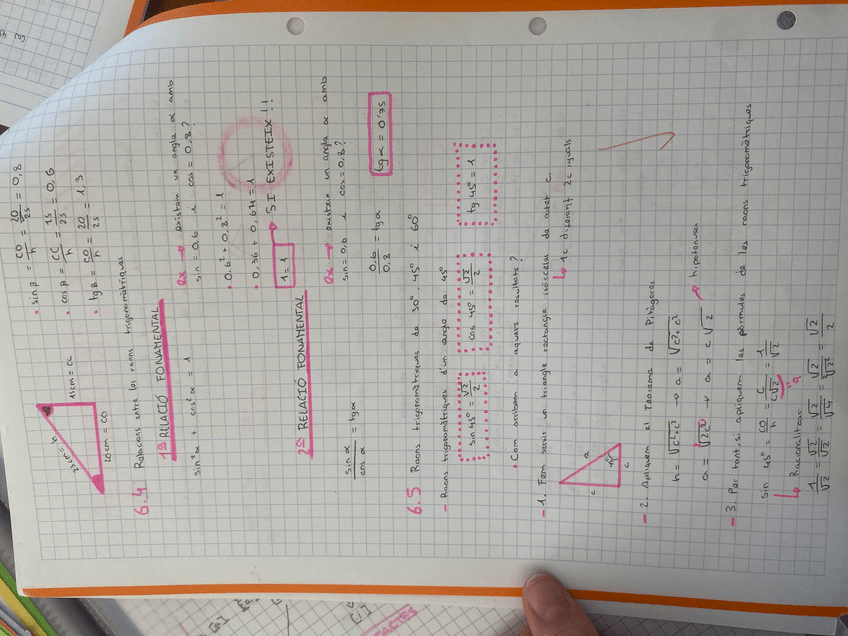 • sin β = CO/h = 20/25 = 0,8
• cos β = CC/h = 15/25 = 0,6
• tg β = CO/h = 20/25 = 1,3
15cm = CC
20cm = CO
6.4 Relacions entre les raons trigonomètriques
1ª RELACIÓ FONAMENTAL
sin²α + cos²α = 1
ex → existeix un angle α amb
sin = 0,6 i cos = 0,8?
• 0,6² + 0,8² = 1
• 0,36 + 0,64 = 1
1 = 1 → SI EXISTEIX!!
2ª RELACIÓ FONAMENTAL
sin α / cos α = tg α
ex → existeix un angle α amb
sin = 0,6 i cos = 0,8?
0,6/0,8 = tg α
tg α = 0'75
6.5 Raons trigonomètriques de 30º 45º i 60º
- Raons trigonomètriques d'un angle de 45º
sin 45º = √2/2
cos 45º = √2/2
tg 45º = 1
• Com arribem a aquests resultats?
- 1. Fem servir un triangle rectangle isòsceles de catet c.
↳ 1c diferent 2c iguals
a
c
c
- 2. Apliquem el Teorema de Pitàgores
h = √c²+c² → a = √c²+c²
a = √2c² → a = c√2 → hipotenusa
- 3. Per tant, si apliquem les fórmules de les raons trigonomètriques
sin 45º = CO/h = c/c√2 = 1/√2
a
↳ Racionalitzar
1/√2 = 1/√2 · √2/√2 = √2/√4 = √2/√2² = √2/2